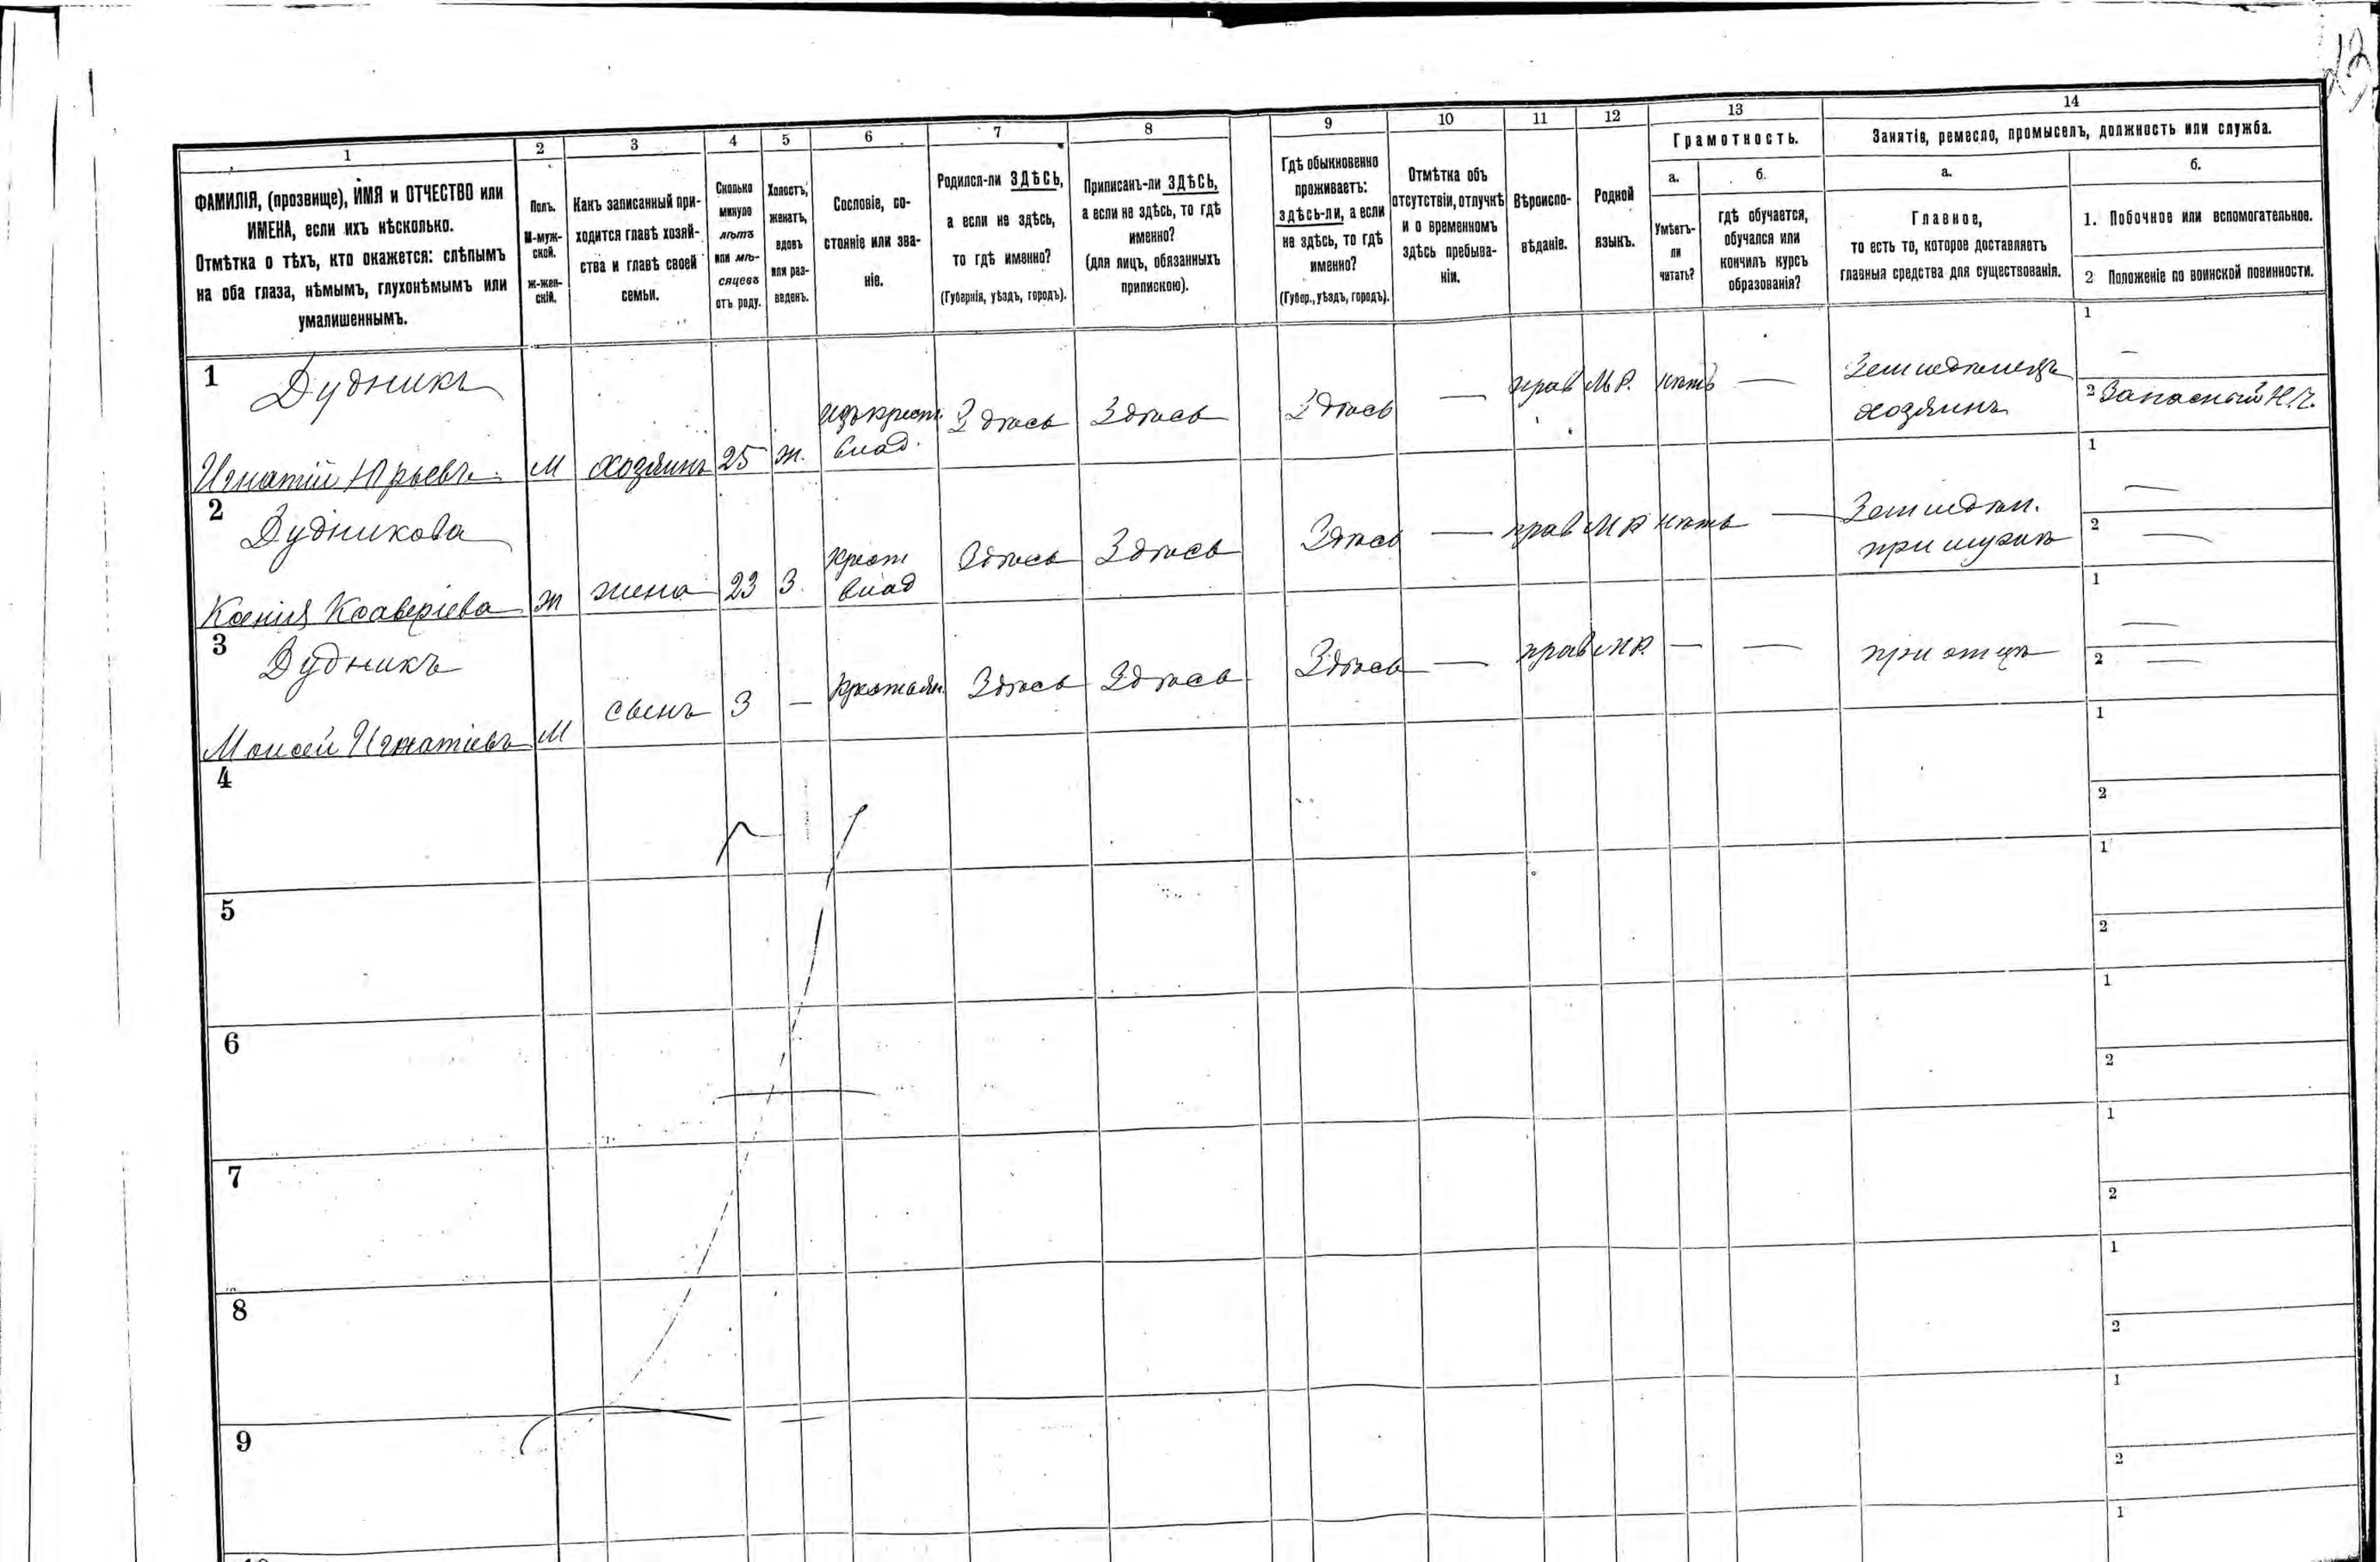 13
1 2 3 4 5 6 7 8 9 10 11 12 13 14
ФАМИЛІЯ, (прозвище), ИМЯ и ОТЧЕСТВО или
ИМЕНА, если ихъ нѣсколько.
Отмѣтка о тѣхъ, кто окажется: слѣпымъ
на оба глаза, нѣмымъ, глухонѣмымъ или
умалишеннымъ.
Полъ.
М-муж-
ской.
ж-жен-
скій.
Какъ записанный при-
ходится главѣ хозяй-
ства и главѣ своей
семьи.
Сколько
минуло
лѣтъ
или мѣ-
сяцевъ
отъ роду.
Холостъ,
женатъ,
вдовъ
или раз-
веденъ.
Сословіе, со-
стояніе или зва-
ніе.
Родился-ли ЗДѢСЬ,
а если не здѣсь,
то гдѣ именно?
(Губернія, уѣздъ, городъ).
Приписанъ-ли ЗДѢСЬ,
а если не здѣсь, то гдѣ
именно?
(для лицъ, обязанныхъ
припискою).
Гдѣ обыкновенно
проживаетъ:
здѣсь-ли, а если
не здѣсь, то гдѣ
именно?
(Губер., уѣздъ, городъ).
Отмѣтка объ
отсутствіи, отлучкѣ
и о временномъ
здѣсь пребыва-
ніи.
Вѣроиспо-
вѣданіе.
Родной
языкъ.
Грамотность.
а.
Умѣетъ-
ли
читать?
б.
гдѣ обучается,
обучался или
кончилъ курсъ
образованія?
Занятія, ремесло, промыселъ, должность или служба.
а.
Главное,
то есть то, которое доставляетъ
главныя средства для существованія.
б.
1. Побочное или вспомогательное.
2 Положеніе по воинской повинности.
1 Дудникъ
Игнатій Юрьевъ М хозяинъ 25 ж.
изъ крест.
влад.
Здѣсь Здѣсь Здѣсь — прав М.Р. нѣтъ —
Земледѣлецъ
хозяинъ
1 —
2 Запасный Н.Ч.
2 Дудникова
Ксенія Ксаверіева ж жена 23 З.
крест
влад
Здѣсь Здѣсь Здѣсь — прав М Р нѣтъ —
Земледѣл.
при мужѣ
1 —
2 —
3 Дудникъ
Моисей Игнатіевъ М сынъ 3 — крестьян. Здѣсь Здѣсь Здѣсь — прав М.Р. — — при отцѣ
1 —
2 —
4
1
2
5
1
2
6
1
2
7
1
2
8
1
2
9
1
2
1